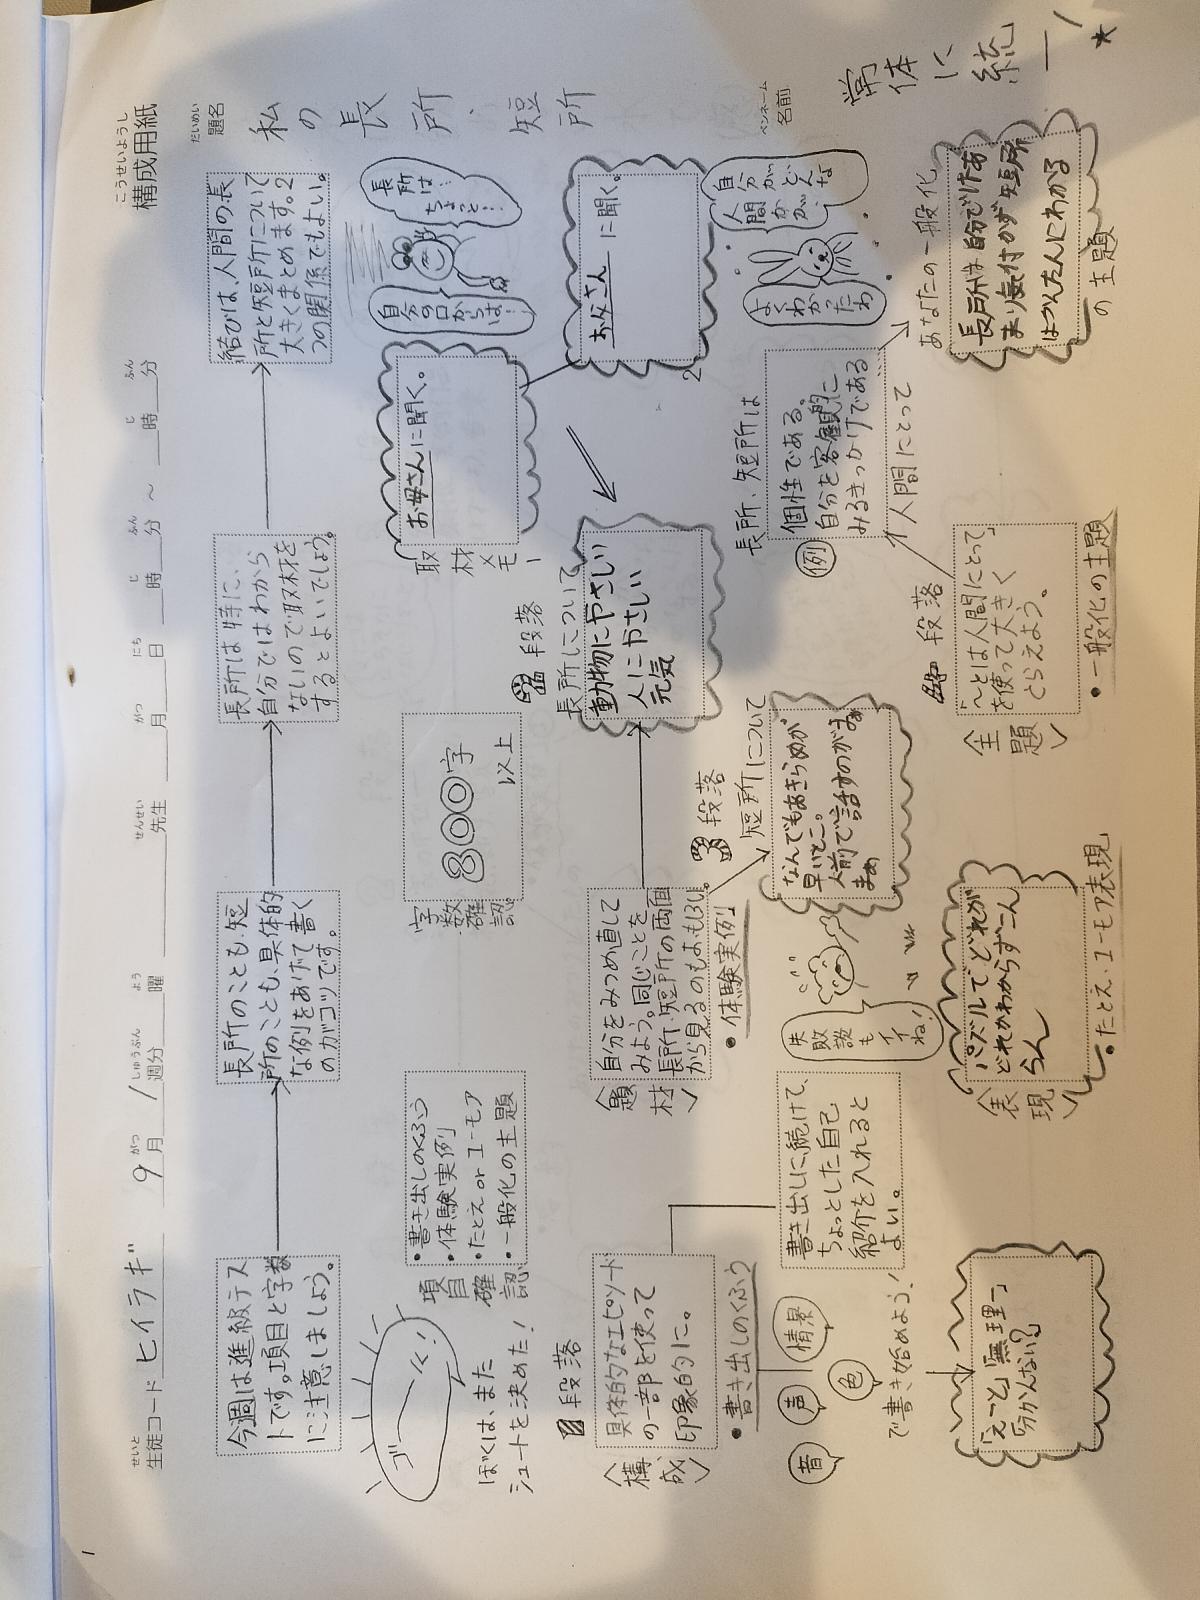 こうせいようし
構成用紙
せいと
生徒コード ヒイラギ 9月 1週分 曜 先生 月 日 時 分 ～ 時 分
がつ しゅうぶん よう せんせい がつ にち じ ふん じ ふん
だいめい
題名
私の長所、短所
ペンネーム
名前
常体に統一!
★
今週は進級テス
トです。項目と字数
に注意しましょう。
長所のことも短
所のことも、具体的
な例をあげて書く
のがコツです。
長所は特に、
自分ではわから
ないので取材を
するとよいでしょう。
結びは、人間の長
所と短所について
大きくまとめます。2
つの関係でもよい。
ゴーール!
ぼくは、また
シュートを決めた!
項目確認
・書き出しのくふう
・体験実例
・たとえ or ユーモア
・一般化の主題
字数確認
800字
以上
取材メモ1
お母さんに聞く。
自分の口からは…
長所は…
ちょっと…
2
お父さんに聞く。
段落
〈構成〉
具体的なエピソード
の一部を使って
印象的に。
・書き出しのくふう
音
声
色
情景
で書き始めよう!
「えーと」「無理ー」
「分かんない?」
書き出しに続けて、
ちょっとした自己
紹介を入れると
よい。
〈題材〉
自分をみつめ直して
みよう。同じことを
長所・短所の両面
から見るのもおもしろい。
・体験実例
段落
長所について
動物にやさしい
人にやさしい
元気
段落
短所について
なんでもあきらめが
早いとこ。
人前で話すのが
失敗談も
イイね!
〈表現〉
パズルでどれが
どれかわからずーん
らん
・たとえ・ユーモア表現
段落
〈主題〉
「～とは人間にとって」
を使って大きく
とらえよう。
・一般化の主題
人間にとって
長所、短所は
例
個性である。
自分を客観的に
みるきっかけである
よくわかったわ
自分がどんな
人間かが…
あなたの一般化の主題
長所は自分ではあ
まり気付かず短所
はかんたんにわかる